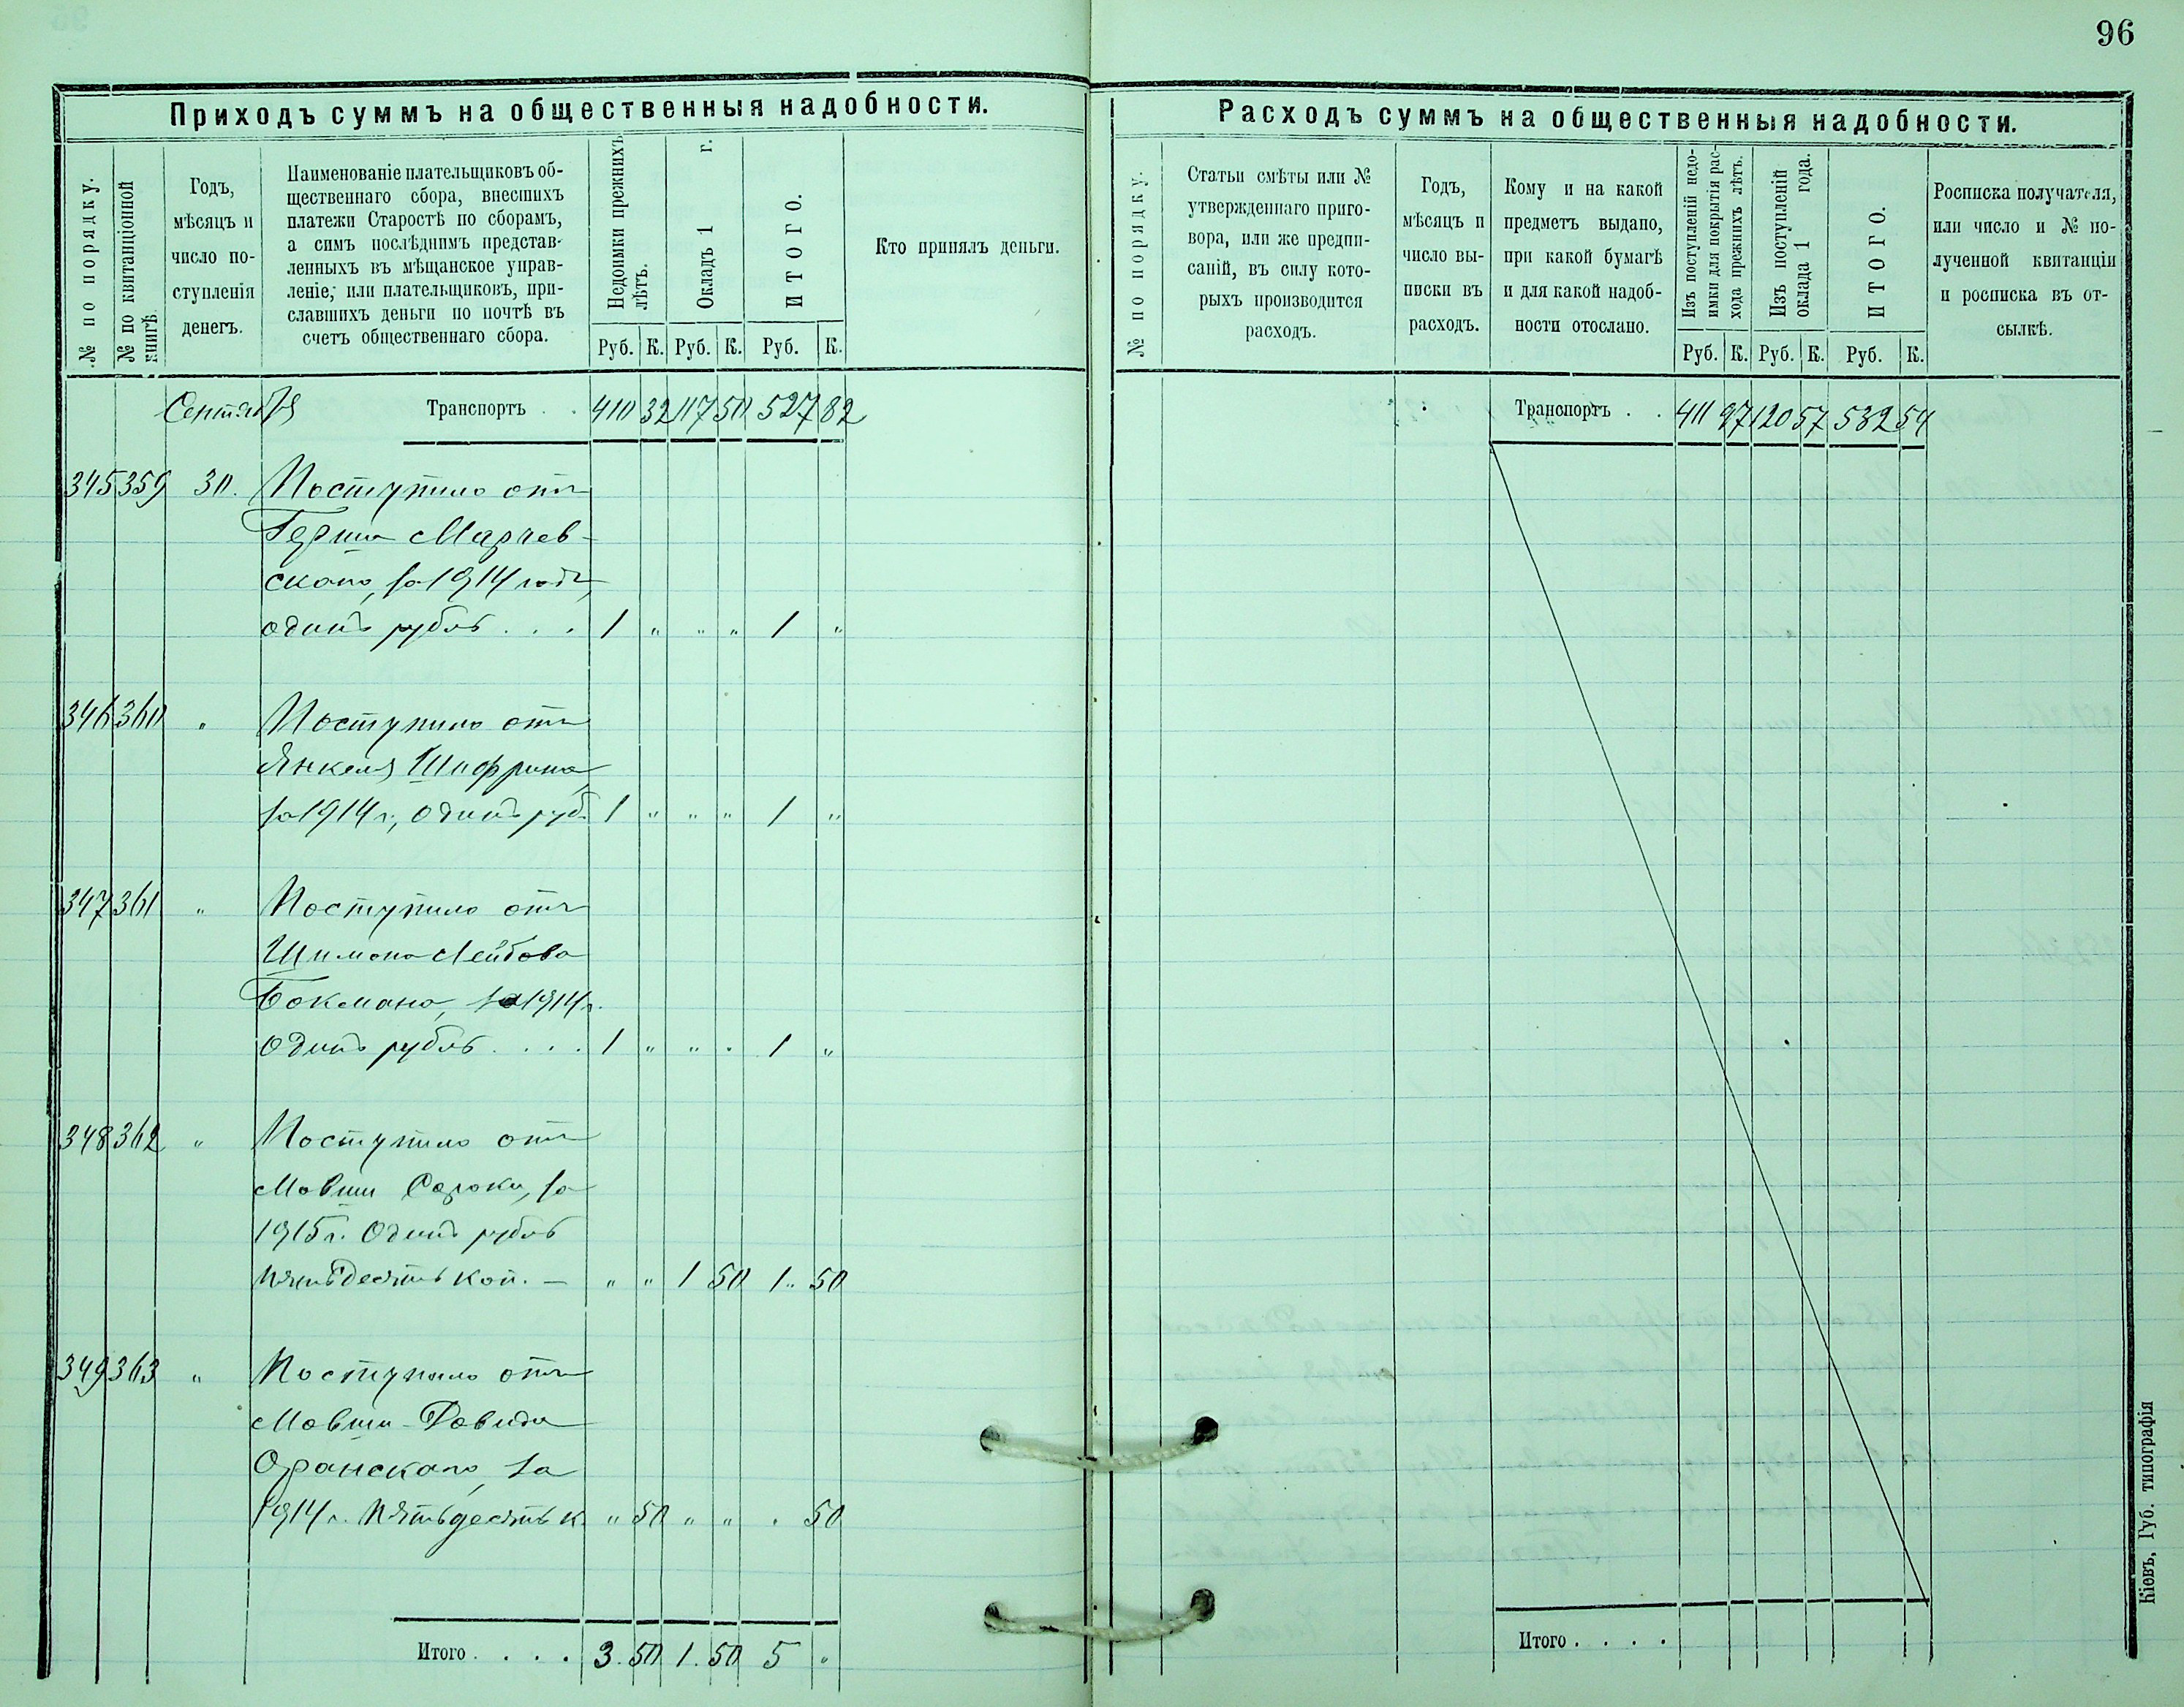 96
Приходъ суммъ на общественныя надобности.
№ по порядку.
№ по квитанціонной книгѣ.
Годъ,
мѣсяцъ и
число по-
ступленія
денегъ.
Наименованіе плательщиковъ об-
щественнаго сбора, внесшихъ
платежи Старостѣ по сборамъ,
а симъ послѣднимъ представ-
ленныхъ въ мѣщанское управ-
леніе; или плательщиковъ, при-
славшихъ деньги по почтѣ въ
счетъ общественнаго сбора.
Недоимки прежнихъ
лѣтъ.
Окладъ 1 г.
ИТОГО.
Кто принялъ деньги.
Руб. К. Руб. К. Руб. К.
Сентября Транспортъ . . 410 32 117 50 527 82
345 359 30. Поступило отъ
Герша Марчев-
скаго, за 1914 годъ,
одинъ рубль . . . 1 " " " 1 "
346 360 " Поступило отъ
Янкеля Шифрина
за 1914 г., одинъ руб. 1 " " " 1 "
347 361 " Поступило отъ
Шимона Лейбова
Бокмана, за 1914 г.
Одинъ рубль . . . . 1 " " " 1 "
348 362 " Поступило отъ
Мовши Сороки, за
1915 г. Одинъ рубль
пятьдесятъ коп. — " " 1 50 1 .. 50
349 363 " Поступило отъ
Мовши-Довида
Оранскаго, за
1914 г. пятьдесятъ к. " 50 " " . 50
Итого . . . . 3. 50 1. 50 5 "
Расходъ суммъ на общественныя надобности.
№ по порядку.
Статьи смѣты или №
утвержденнаго приго-
вора, или же предпи-
саній, въ силу кото-
рыхъ производится
расходъ.
Годъ,
мѣсяцъ и
число вы-
писки въ
расходъ.
Кому и на какой
предметъ выдано,
при какой бумагѣ
и для какой надоб-
ности отослано.
Изъ поступленій недо-
имки для покрытія рас-
хода прежнихъ лѣтъ.
Изъ поступленій
оклада 1 года.
ИТОГО.
Росписка получателя,
или число и № по-
лученной квитанціи
и росписка въ от-
сылкѣ.
Руб. К. Руб. К. Руб. К.
Транспортъ . . 411 97 120 57 532 54
Итого . . . .
Кіевъ, Губ. типографія